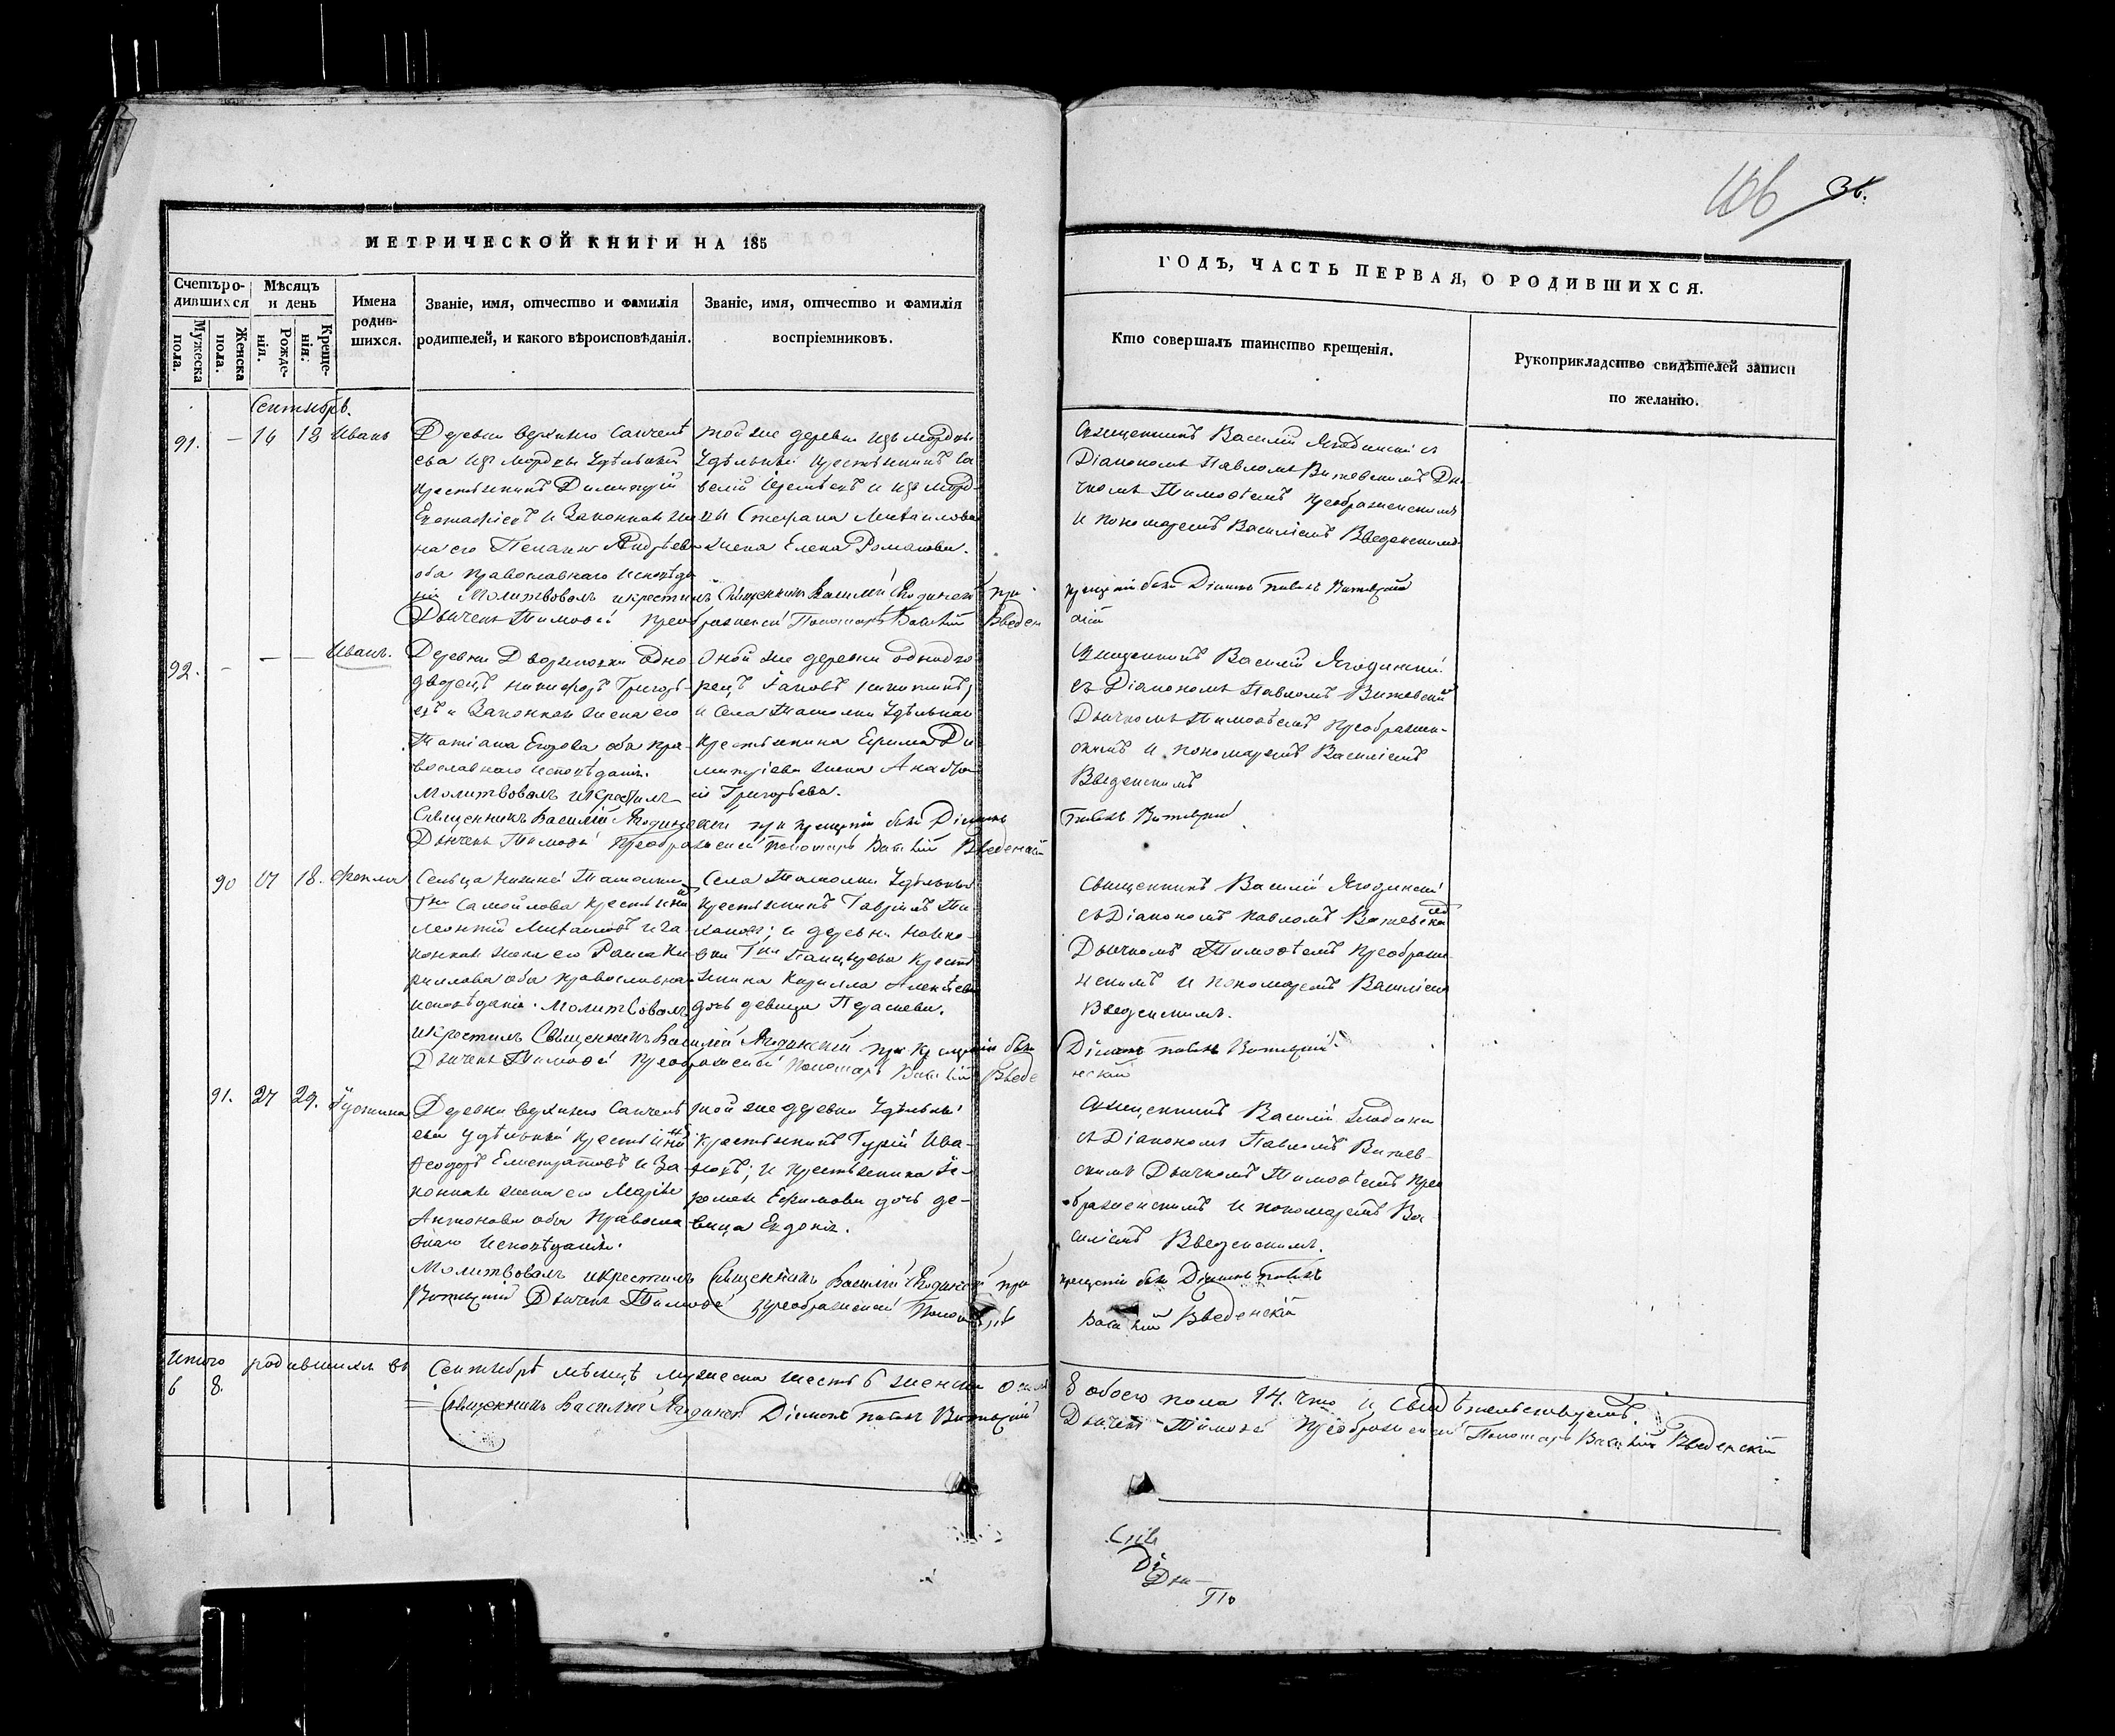 106 36.
МЕТРИЧЕСКОЙ КНИГИ НА 185
ГОДЪ, ЧАСТЬ ПЕРВАЯ, О РОДИВШИХСЯ.
Счетъ ро-
дившихся
Мужеска пола.
Женска пола.
Мѣсяцъ
и день
Рожде-
нія.
Креще-
нія.
Имена
родив-
шихся.
Званіе, имя, отчество и фамилія
родителей, и какого вѣроисповѣданія.
Званіе, имя, отчество и фамилія
воспріемниковъ.
Кто совершалъ таинство крещенія.
Рукоприкладство свидѣтелей записи
по желанію.
Сентябрь.
91. — 16 18 Иванъ
Деревни верхняго Санчелѣ
ева изъ мордвы Удѣльный
крестьянинъ Димитрій
и Законная же
на его Пелагия Андрѣева
оба православнаго исповѣда
нія Молитвовалъ и крестилъ Священникъ Василій Ягодинскій при крещеніи были Діаконъ Павелъ Витевскій
Дьячекъ Тимоѳей Преображенскій Пономарь Василій Введенскій
той же деревни изъ мордвы
Удѣльный крестьянинъ Са
велій и изъ морд
вы Стефана Михайлова
жена Елена Романова.
Священникъ Василій Ягодинскій съ
Діакономъ Павломъ Витевскимъ Дья
чкомъ Тимоѳеемъ Преображенскимъ
и пономаремъ Василіемъ Введенскимъ
92. - — — Иванъ.
Деревни Дворянки одно
дворецъ Никифоръ Григорь
евъ и Законная жена его
Татіана Егорова оба пра-
вославнаго исповѣданія.
Молитвовалъ и крестилъ
Священникъ Василій Ягодинскій при крещеніи были Діаконъ Павелъ Витевскій
Дьячекъ Тимоѳей Преображенскій Пономарь Василій Введенскій
Оной же деревни однодво
рецъ Іаковъ
и Села Ташолки Удѣльнаго
крестьянина Ефима Ди
митріева жена Анастас
ія Григорьева.
Священникъ Василій Ягодинскій
съ Діакономъ Павломъ Витевскимъ
Дьячкомъ Тимоѳеемъ Преображен-
скимъ и пономаремъ Василіемъ
Введенскимъ
90 17 18. Фекла
Сельца Нижней Ташолки
Гна Самойлова крестьянинъ
Леонтій Михайловъ и за
конная жена его Раиса Ки
риллова оба православнаго
исповѣданія. Молитвовалъ
и крестилъ Священникъ Василій Ягодинскій при крещеніи были Діаконъ Павелъ Витевскій
Дьячекъ Тимоѳей Преображенскій Пономарь Василій Введенскій
Села Ташолки Удѣльный
крестьянинъ Гавріилъ
и деревни
Гна крестья
нина Кирилла Алексѣева
дочь девица Параскева.
Священникъ Василій Ягодинскій
съ Діакономъ Павломъ Витевскимъ
Дьячкомъ Тимоѳеемъ Преображе
нскимъ и пономаремъ Василіемъ
Введенскимъ.
91. 27 29. Іустинія
Деревни верхняго Санчелѣ
ева удѣльный крестьянинъ
Ѳеодоръ Елистратовъ и за-
конная жена его Марія
Антонова оба Правосла
внаго исповѣданія.
Молитвовалъ и крестилъ Священникъ Василій Ягодинскій при крещеніи были Діаконъ Павелъ
Витевскій Дьячекъ Тимоѳей Преображенскій Пономарь Василій Введенскій
той же деревни Удѣльный
крестьянинъ Гурій Ива-
новъ; и крестьянина Іе-
ремея Ефимова дочь де-
вица Евдокія.
Священникъ Василій Ягодинскій
съ Діакономъ Павломъ Витев-
скимъ Дьячкомъ Тимоѳеемъ Прео
браженскимъ и пономаремъ Ва
силіемъ Введенскимъ.
Итого родившихся въ Сентябрѣ мѣсяцѣ мужеска шесть 6 женска осмь 8 обоего пола 14. что и свидѣтельствуемъ.
6 8.
Священникъ Василій Ягодинскій Діаконъ Павелъ Витевскій Дьячекъ Тимоѳей Преображенскій Пономарь Василій Введенскій
Ді
Дья—
По